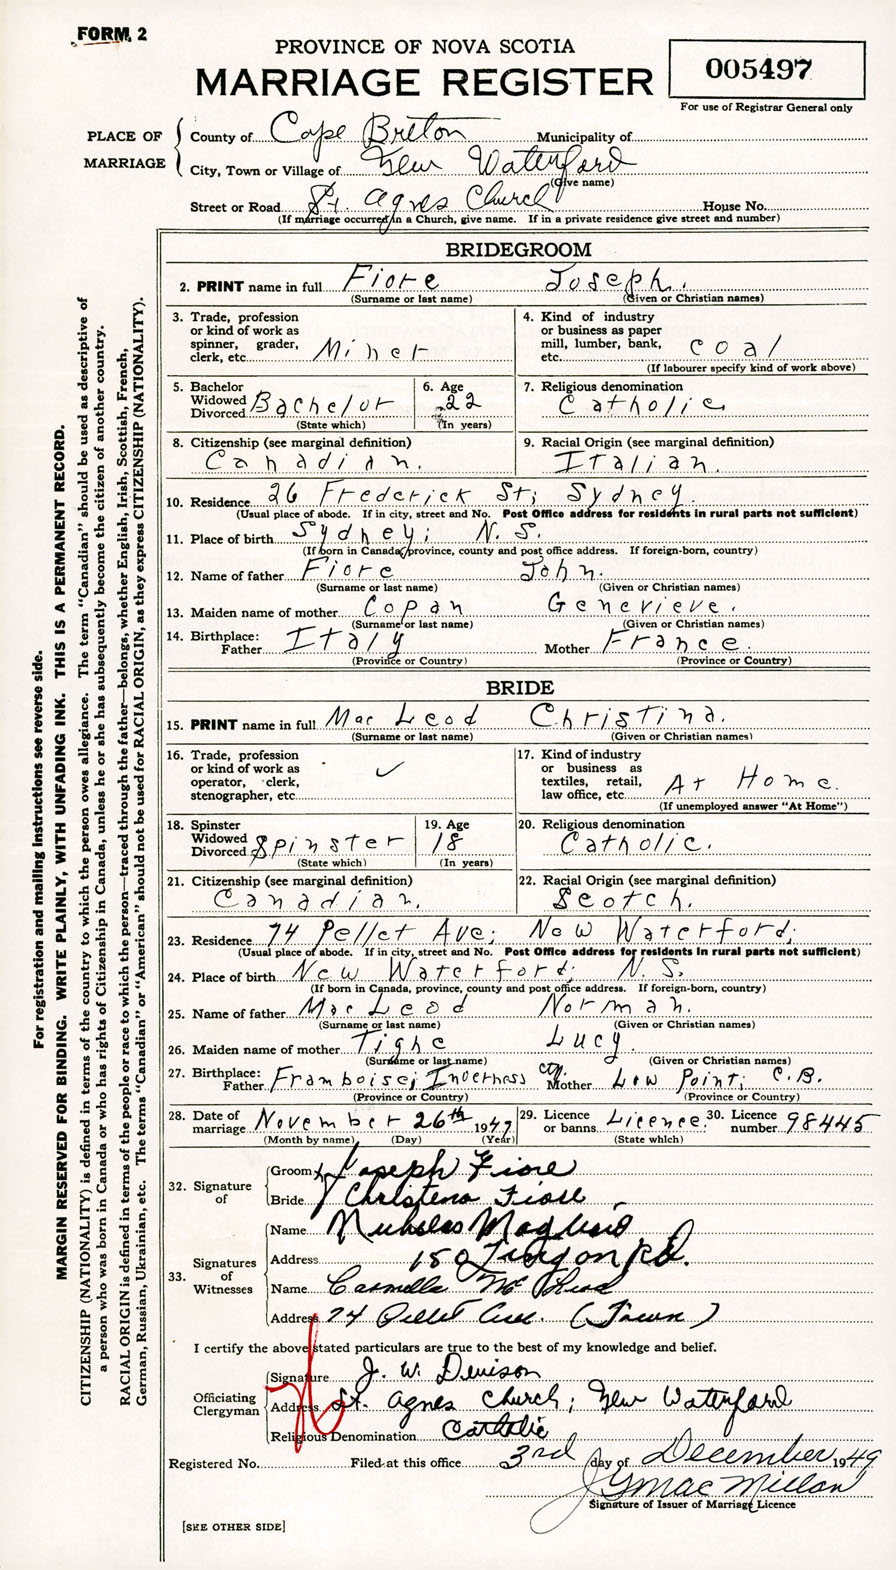 FORM 2
PROVINCE OF NOVA SCOTIA
MARRIAGE REGISTER
005497
For use of Registrar General only
PLACE OF MARRIAGE
County of Cape Breton Municipality of
City, Town or Village of New Waterford
(Give name)
Street or Road St. Agnes Church House No.
(If marriage occurred in a Church, give name. If in a private residence give street and number)
BRIDEGROOM
2. PRINT name in full Fiore Joseph.
(Surname or last name) (Given or Christian names)
3. Trade, profession or kind of work as spinner, grader, clerk, etc. Miner
4. Kind of industry or business as paper mill, lumber, bank, etc. Coal
(If labourer specify kind of work above)
5. Bachelor Widowed Divorced Bachelor
(State which)
6. Age 22
(In years)
7. Religious denomination
Catholic
8. Citizenship (see marginal definition)
Canadian.
9. Racial Origin (see marginal definition)
Italian.
10. Residence 26 Frederick St; Sydney.
(Usual place of abode. If in city, street and No. Post Office address for residents in rural parts not sufficient)
11. Place of birth Sydney; N. S.
(If born in Canada, province, county and post office address. If foreign-born, country)
12. Name of father Fiore John.
(Surname or last name) (Given or Christian names)
13. Maiden name of mother Copan Genevieve.
(Surname or last name) (Given or Christian names)
14. Birthplace: Father Italy Mother France.
(Province or Country) (Province or Country)
BRIDE
15. PRINT name in full Mac Leod Christina.
(Surname or last name) (Given or Christian names)
16. Trade, profession or kind of work as operator, clerk, stenographer, etc. ✓
17. Kind of industry or business as textiles, retail, law office, etc. At Home.
(If unemployed answer "At Home")
18. Spinster Widowed Divorced Spinster
(State which)
19. Age 18
(In years)
20. Religious denomination
Catholic.
21. Citizenship (see marginal definition)
Canadian.
22. Racial Origin (see marginal definition)
Scotch.
23. Residence 74 Pellet Ave; New Waterford;
(Usual place of abode. If in city, street and No. Post Office address for residents in rural parts not sufficient)
24. Place of birth New Waterford; N. S.
(If born in Canada, province, county and post office address. If foreign-born, country)
25. Name of father Mac Leod Norman.
(Surname or last name) (Given or Christian names)
26. Maiden name of mother Tighe Lucy.
(Surname or last name) (Given or Christian names)
27. Birthplace: Father Framboise; Inverness cty. Mother Low Point; C.B.
(Province or Country) (Province or Country)
28. Date of marriage November 26th 1949
(Month by name) (Day) (Year)
29. Licence or banns Licence.
(State which)
30. Licence number 98445
32. Signature of
Groom X Joseph Fiore
Bride Christena Fiore
33. Signatures of Witnesses
Name Nicholas
Address 150 Rd.
Name Carmella
Address 74 Pellet Ave. (Town)
I certify the above stated particulars are true to the best of my knowledge and belief.
Officiating Clergyman
Signature J. W. Denison
Address St. Agnes Church; New Waterford
Religious Denomination Catholic
Registered No. Filed at this office 3rd day of December 1949
J G Mac Millan
Signature of Issuer of Marriage Licence
[SEE OTHER SIDE]
For registration and mailing instructions see reverse side.
MARGIN RESERVED FOR BINDING. WRITE PLAINLY, WITH UNFADING INK. THIS IS A PERMANENT RECORD.
CITIZENSHIP (NATIONALITY) is defined in terms of the country to which the person owes allegiance. The term "Canadian" should be used as descriptive of
a person who was born in Canada or who has rights of Citizenship in Canada, unless he or she has subsequently become the citizen of another country.
RACIAL ORIGIN is defined in terms of the people or race to which the person—traced through the father—belongs, whether English, Irish, Scottish, French,
German, Russian, Ukrainian, etc. The terms "Canadian" or "American" should not be used for RACIAL ORIGIN, as they express CITIZENSHIP (NATIONALITY).